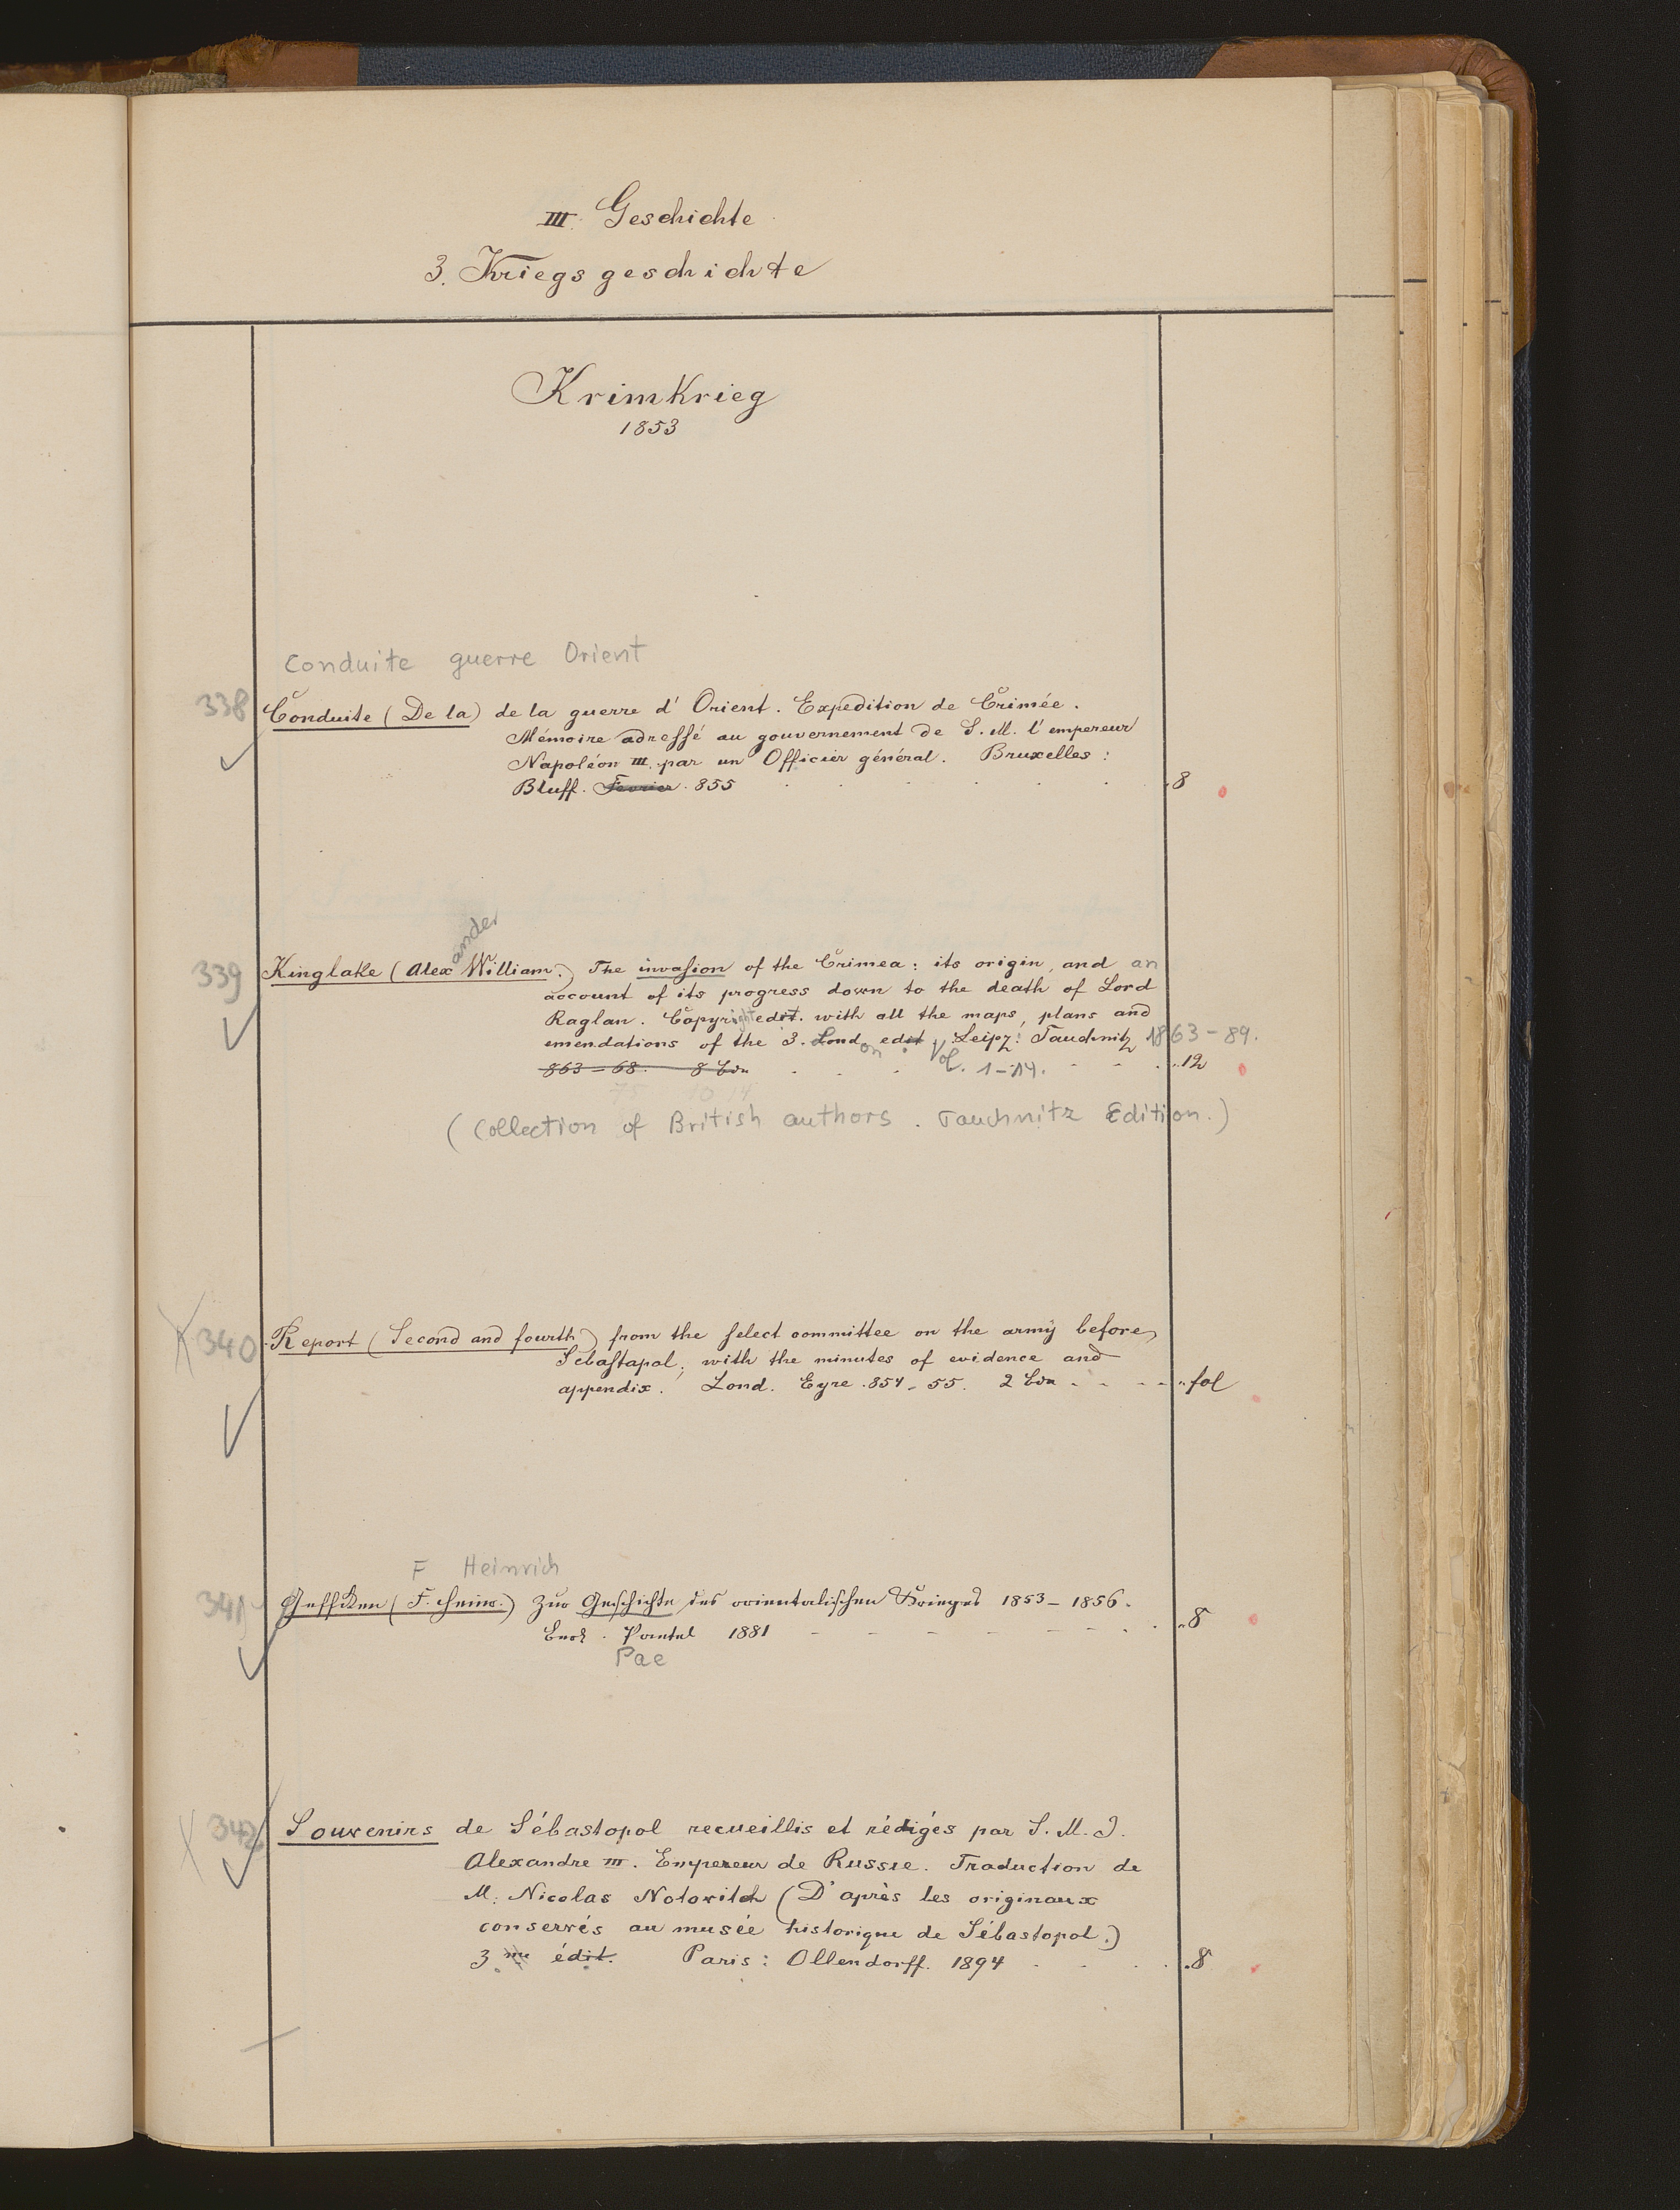 III. Geschichte
3. Kriegsgeschichte
Krimkrieg
1853
Conduite guerre Orient
338 Conduite (De la) de la guerre d'Orient. Expedition de Crimée.
Mémoire adressé au gouvernement de S. M. l'empereur
Napoléon III. par un Officier général. Bruxelles:
Bluff. Fevrier. 855 8
ander
339 Kinglake (Alex William.) The invasion of the Crimea: its origin, and an
account of its progress down to the death of Lord
Raglan. Copyright edit. with all the maps, plans and
emendations of the 3. London edit. Leipz: Tauchnitz 1863-89.
863-68. 8 Bde Vol. 1-14. 12
75 10 14
(Collection of British authors. Tauchnitz Edition.)
340 Report (Second and fourth) from the select committee on the army before
Sebastapol; with the minutes of evidence and
appendix. Lond. Eyre. 854-55. 2 Bde fol
F Heinrich
341 Geffken (F. Heinr.) Zur Geschichte des orientalischen Krieges 1853-1856.
Berl. Paetel 1881 8
Pae
342 Souvenirs de Sébastopol recueillis et rédigés par S. M. I.
Alexandre III. Empereur de Russie. Traduction de
M. Nicolas Notowitch (D'après les originaux
conservés au musée historique de Sébastopol.)
3me édit. Paris: Ollendorff. 1894 8